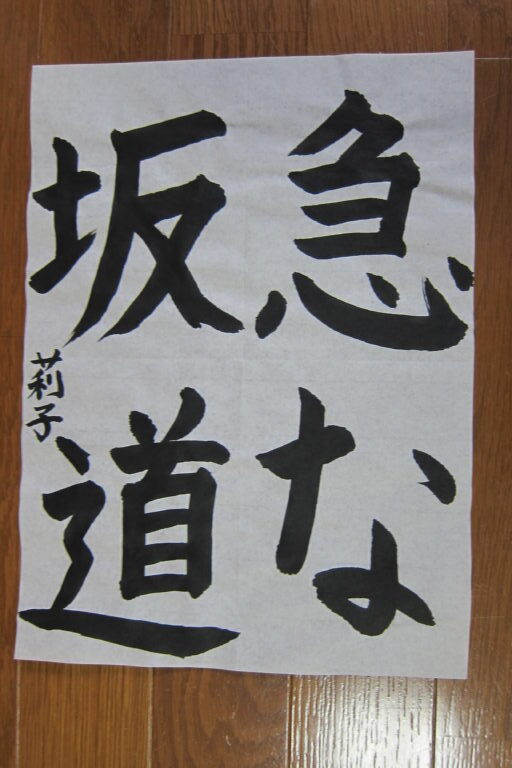 急な
坂道
莉子